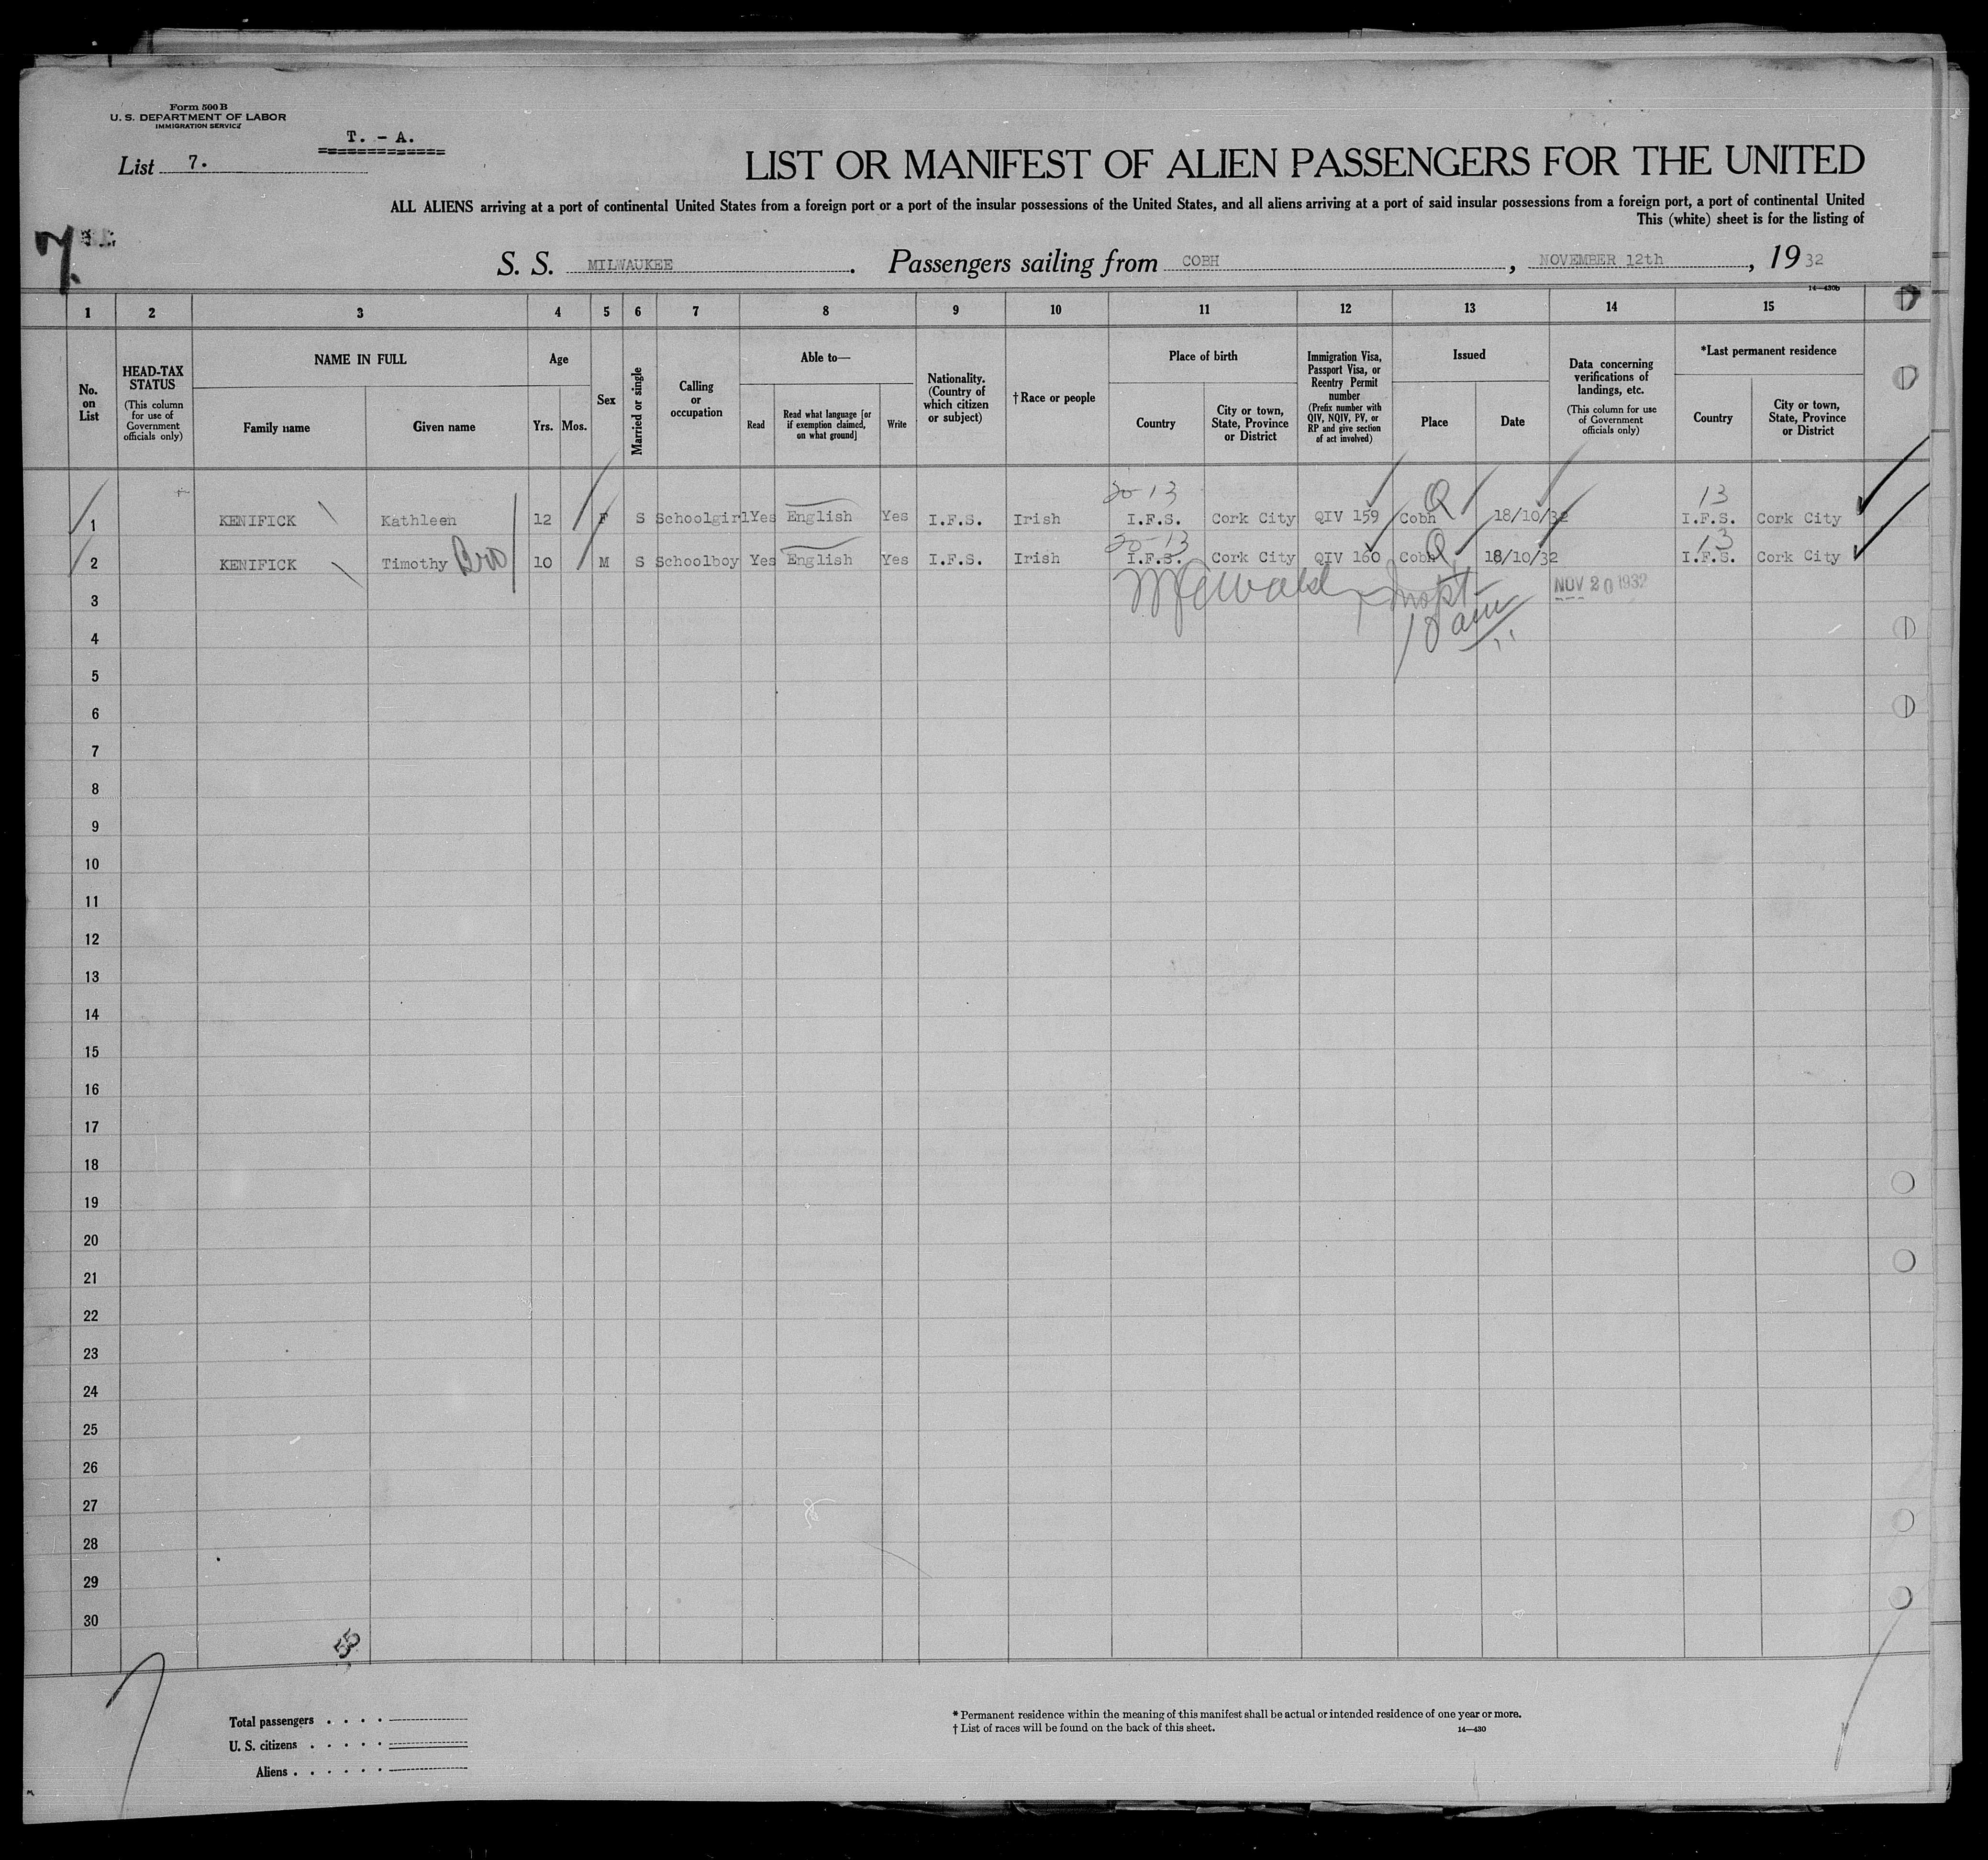 Form 500 B
U. S. DEPARTMENT OF LABOR
IMMIGRATION SERVICE
T. - A.
List 7.
LIST OR MANIFEST OF ALIEN PASSENGERS FOR THE UNITED
ALL ALIENS arriving at a port of continental United States from a foreign port or a port of the insular possessions of the United States, and all aliens arriving at a port of said insular possessions from a foreign port, a port of continental United
This (white) sheet is for the listing of
7.
S. S. MILWAUKEE. Passengers sailing from COBH, NOVEMBER 12th, 1932
14—430b
1 2 3 4 5 6 7 8 9 10 11 12 13 14 15
No. on List
HEAD-TAX STATUS (This column for use of Government officials only)
NAME IN FULL
Family name
Given name
Age
Yrs. Mos.
Sex
Married or single
Calling or occupation
Able to—
Read
Read what language [or if exemption claimed, on what ground]
Write
Nationality. (Country of which citizen or subject)
†Race or people
Place of birth
Country
City or town, State, Province or District
Immigration Visa, Passport Visa, or Reentry Permit number (Prefix number with QIV, NQIV, PV, or RP and give section of act involved)
Issued
Place
Date
Data concerning verifications of landings, etc. (This column for use of Government officials only)
*Last permanent residence
Country
City or town, State, Province or District
20-13 Q 13
1 KENIFICK Kathleen 12 F S Schoolgirl Yes English Yes I.F.S. Irish I.F.S. Cork City QIV 159 Cobh 18/10/32 I.F.S. Cork City
20-13 Q 13
2 KENIFICK Timothy Bro 10 M S Schoolboy Yes English Yes I.F.S. Irish I.F.S. Cork City QIV 160 Cobh 18/10/32 I.F.S. Cork City
3 Inspt. NOV 20 1932
10 am
4
5
6
7
8
9
10
11
12
13
14
15
16
17
18
19
20
21
22
23
24
25
26
27
28
29
30
55
Total passengers . . . .
U. S. citizens . . . . .
Aliens . . . . . .
* Permanent residence within the meaning of this manifest shall be actual or intended residence of one year or more.
† List of races will be found on the back of this sheet. 14—430